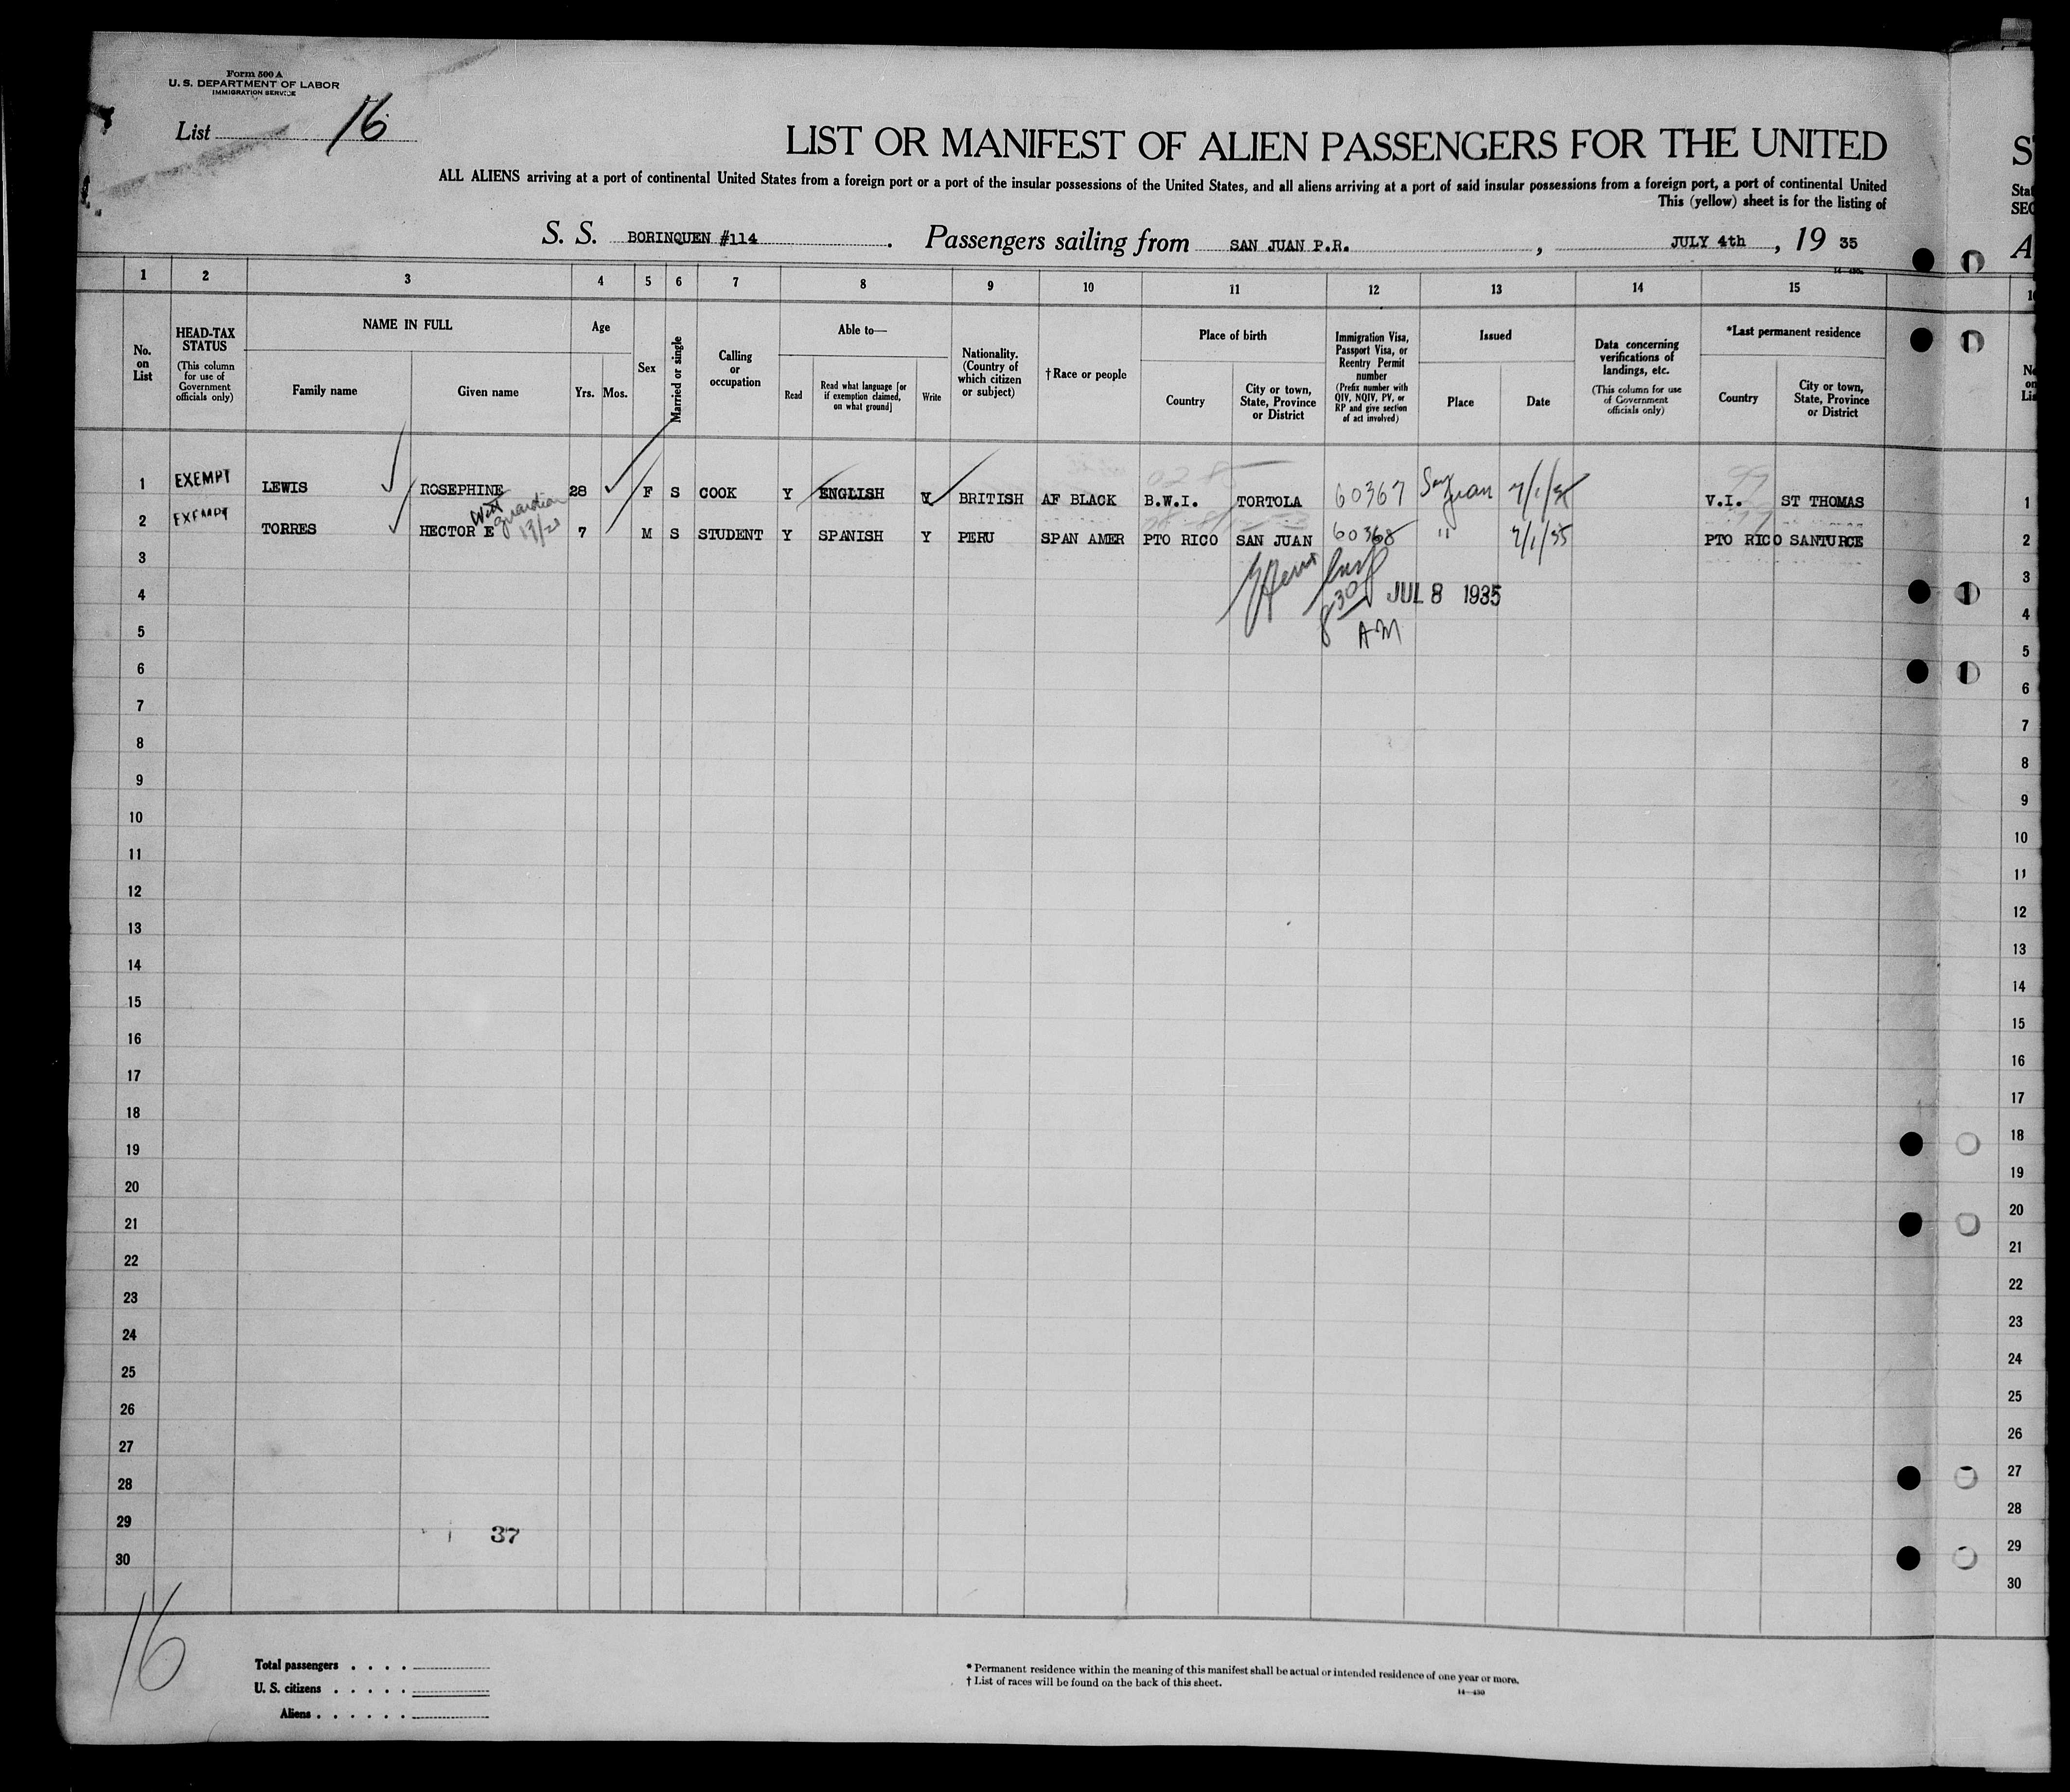 Form 500 A
U. S. DEPARTMENT OF LABOR
IMMIGRATION SERVICE
List 16
LIST OR MANIFEST OF ALIEN PASSENGERS FOR THE UNITED
ALL ALIENS arriving at a port of continental United States from a foreign port or a port of the insular possessions of the United States, and all aliens arriving at a port of said insular possessions from a foreign port, a port of continental United
This (yellow) sheet is for the listing of
S. S. BORINQUEN #114 . Passengers sailing from SAN JUAN P.R. , JULY 4th , 19 35
14-430
1 2 3 4 5 6 7 8 9 10 11 12 13 14 15
No. on List
HEAD-TAX STATUS
(This column for use of Government officials only)
NAME IN FULL
Family name
Given name
Age
Yrs. Mos.
Sex
Married or single
Calling or occupation
Able to—
Read
Read what language [or if exemption claimed, on what ground]
Write
Nationality. (Country of which citizen or subject)
†Race or people
Place of birth
Country
City or town, State, Province or District
Immigration Visa, Passport Visa, or Reentry Permit number
(Prefix number with QIV, NQIV, PV, or RP and give section of act involved)
Issued
Place
Date
Data concerning verifications of landings, etc.
(This column for use of Government officials only)
*Last permanent residence
Country
City or town, State, Province or District
1 EXEMPT LEWIS ROSEPHINE 28 F S COOK Y ENGLISH Y BRITISH AF BLACK B.W.I. TORTOLA 60367 San Juan 7/1/35 V.I. ST THOMAS 1
guardian
2 EXEMPT TORRES HECTOR E 7 M S STUDENT Y SPANISH Y PERU SPAN AMER PTO RICO SAN JUAN 60368 " 7/1/35 PTO RICO SANTURCE 2
3 3
4 JUL 8 1935 4
830
AM
5 5
6 6
7 7
8 8
9 9
10 10
11 11
12 12
13 13
14 14
15 15
16 16
17 17
18 18
19 19
20 20
21 21
22 22
23 23
24 24
25 25
26 26
27 27
28 28
29 37 29
30 30
16
Total passengers . . . .
U. S. citizens . . . . .
Aliens . . . . . .
* Permanent residence within the meaning of this manifest shall be actual or intended residence of one year or more.
† List of races will be found on the back of this sheet.
14—430